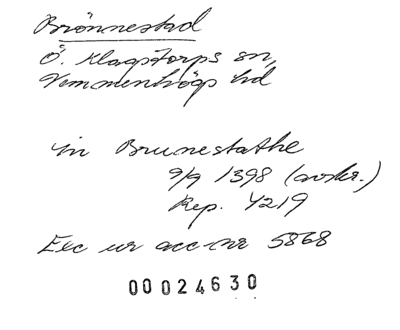 Brönnestad
Ö. Klagstorps sn,
Vemmenhögs hd
in Brunestathe
9/9 1398 (avskr.)
Rep. 4219
Exc ur acc-nr 5868
00024630